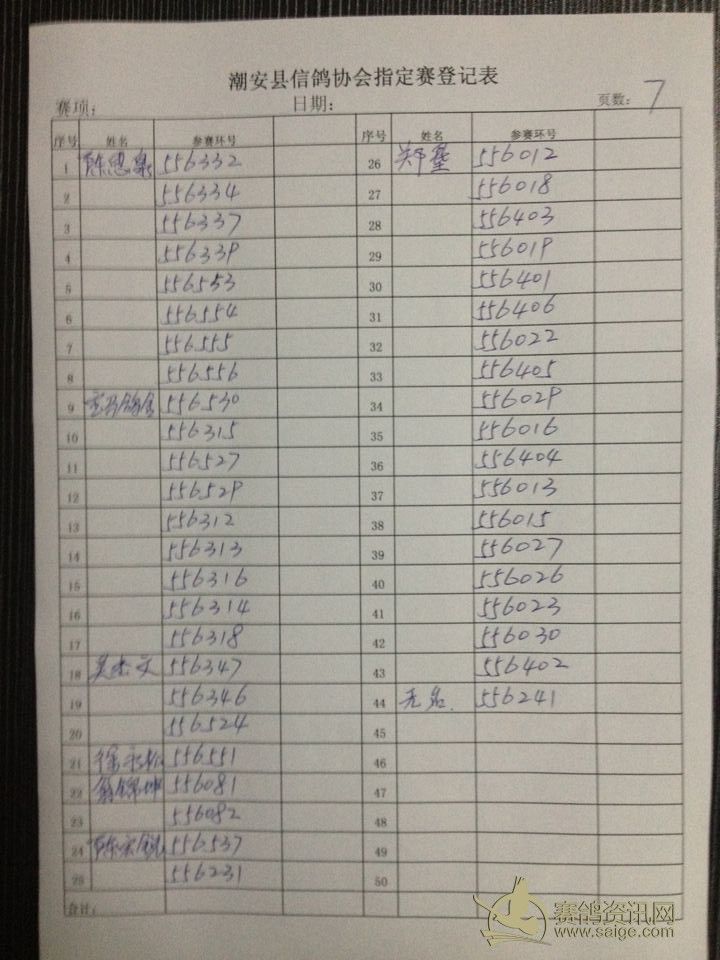 潮安县信鸽协会指定赛登记表
赛项： 日期： 页数：7
序号 姓名 参赛环号 序号 姓名 参赛环号
1 陈思泉 556332 26 郑基 556012
2 556334 27 556018
3 556337 28 556403
4 556339 29 556019
5 556553 30 556401
6 556554 31 556406
7 556555 32 556022
8 556556 33 556405
9 556530 34 556029
10 556315 35 556016
11 556527 36 556404
12 556529 37 556013
13 556312 38 556015
14 556313 39 556027
15 556316 40 556026
16 556314 41 556023
17 556318 42 556030
18 556347 43 556402
19 556346 44 无名. 556241
20 556524 45
21 徐永松 556551 46
22 翁锦坤 556081 47
23 556082 48
24 陈宏锐 556537 49
25 556231 50
合计：
赛鸽资讯网
www.saige.com